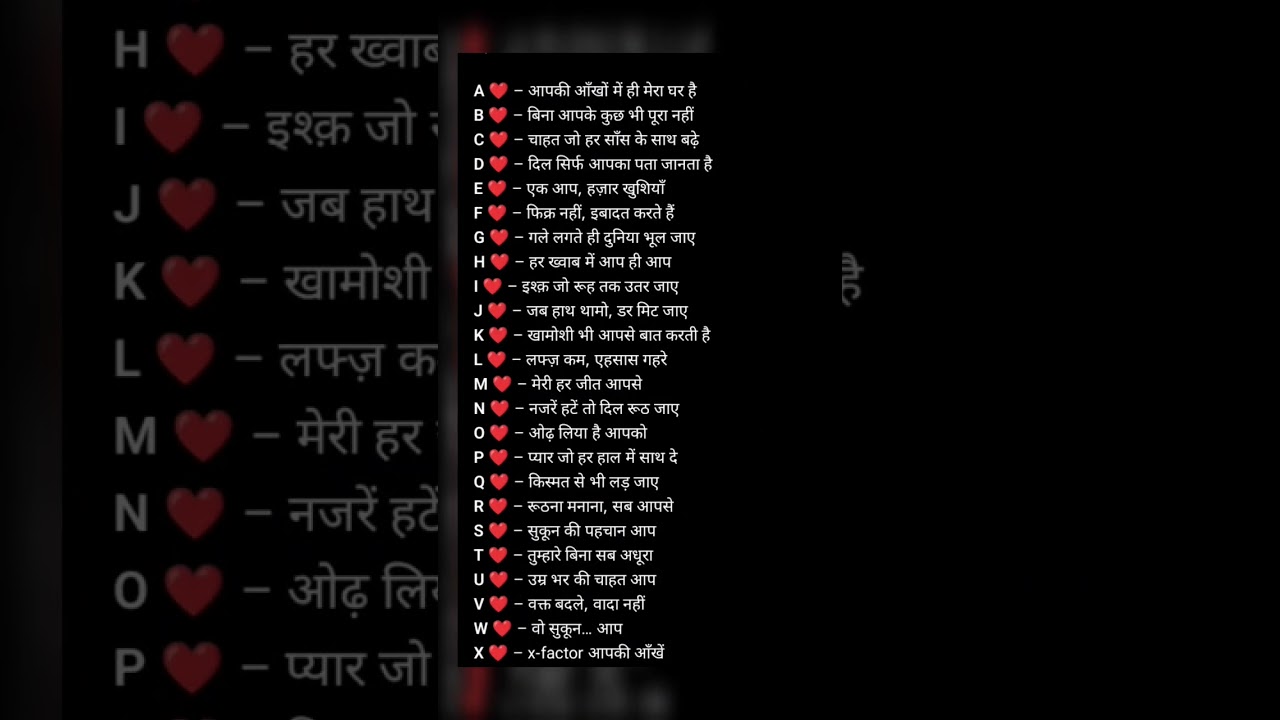 A ❤️ – आपकी आँखों में ही मेरा घर है
B ❤️ – बिना आपके कुछ भी पूरा नहीं
C ❤️ – चाहत जो हर साँस के साथ बढ़े
D ❤️ – दिल सिर्फ आपका पता जानता है
E ❤️ – एक आप, हज़ार खुशियाँ
F ❤️ – फिक्र नहीं, इबादत करते हैं
G ❤️ – गले लगते ही दुनिया भूल जाए
H ❤️ – हर ख्वाब में आप ही आप
I ❤️ – इश्क़ जो रूह तक उतर जाए
J ❤️ – जब हाथ थामो, डर मिट जाए
K ❤️ – खामोशी भी आपसे बात करती है
L ❤️ – लफ्ज़ कम, एहसास गहरे
M ❤️ – मेरी हर जीत आपसे
N ❤️ – नजरें हटें तो दिल रूठ जाए
O ❤️ – ओढ़ लिया है आपको
P ❤️ – प्यार जो हर हाल में साथ दे
Q ❤️ – किस्मत से भी लड़ जाए
R ❤️ – रूठना मनाना, सब आपसे
S ❤️ – सुकून की पहचान आप
T ❤️ – तुम्हारे बिना सब अधूरा
U ❤️ – उम्र भर की चाहत आप
V ❤️ – वक्त बदले, वादा नहीं
W ❤️ – वो सुकून… आप
X ❤️ – x-factor आपकी आँखें
H ❤️ – हर ख्वाब
I ❤️ – इश्क़ जो
J ❤️ – जब हाथ
K ❤️ – खामोशी
L ❤️ – लफ्ज़
M ❤️ – मेरी हर
N ❤️ – नजरें हटें
O ❤️ – ओढ़
P ❤️ – प्यार जो